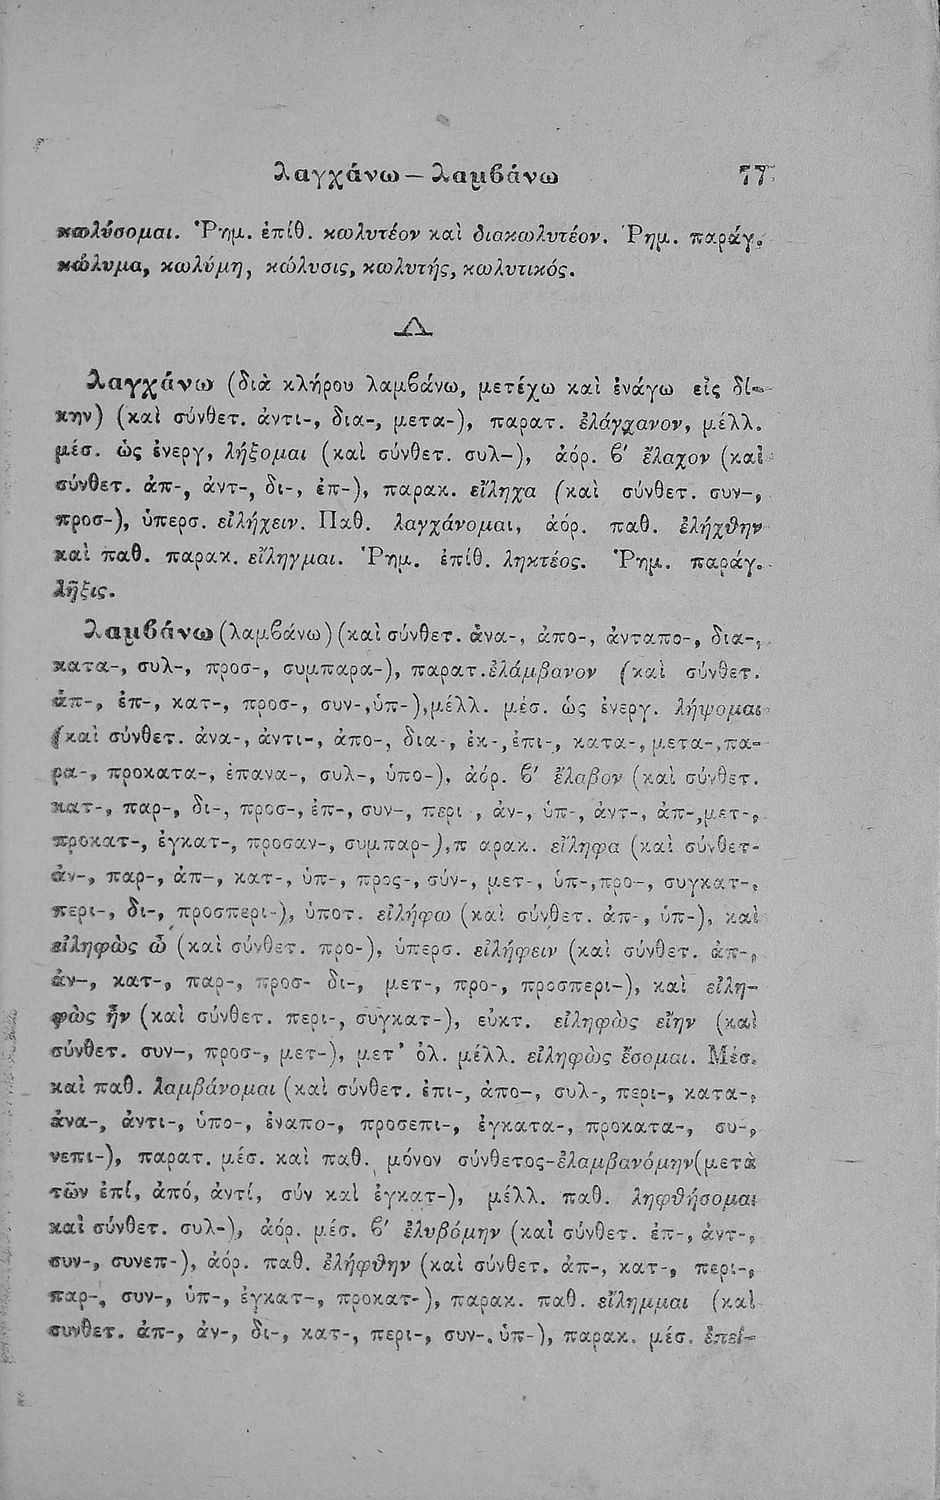 λαγχάνω — λαμβάνω 77
κωλύσομαι. Ῥημ. ἐπίθ. κωλυτέον καὶ διακωλυτέον. Ῥημ. παράγ.
κώλυμα, κωλύμη, κώλυσις, κωλυτής, κωλυτικός.
Λ
λαγχάνω (διὰ κλήρου λαμβάνω, μετέχω καὶ ἐνάγω εἰς δί-
κην) (καὶ σύνθετ. ἀντι-, δια-, μετα-), παρατ. ἐλάγχανον, μέλλ.
μέσ. ὡς ἐνεργ, λήξομαι (καὶ σύνθετ. συλ-), ἀόρ. β' ἔλαχον (καὶ
σύνθετ. ἀπ-, ἀντ-, δι-, ἐπ-), παρακ. εἴληχα (καὶ σύνθετ. συν-,
προσ-), ὑπερσ. εἰλήχειν. Παθ. λαγχάνομαι, ἀόρ. παθ. ἐλήχθην
καὶ παθ. παρακ. εἴληγμαι. Ῥημ. ἐπίθ. ληκτέος. Ῥημ. παράγ.
λῆξις.
λαμβάνω (λαμβάνω) (καὶ σύνθετ. ἀνα-, ἀπο-, ἀνταπο-, δια-,
κατα-, συλ-, προσ-, συμπαρα-), παρατ. ἐλάμβανον (καὶ σύνθετ.
ἀπ-, ἐπ-, κατ-, προσ-, συν-,ὑπ-),μέλλ. μέσ. ὡς ἐνεργ. λήψομαι
(καὶ σύνθετ. ἀνα-, ἀντι-, ἀπο-, δια-, ἐκ-,ἐπι-, κατα-, μετα-,πα-
ρα-, προκατα-, ἐπανα-, συλ-, ὑπο-), ἀόρ. β' ἔλαβον (καὶ σύνθετ.
κατ-, παρ-, δι-, προσ-, ἐπ-, συν-, περι , ἀν-, ὑπ-, ἀντ-, ἀπ-,μετ-,
προκατ-, ἐγκατ-, προσαν-, συμπαρ-),π αρακ. εἴληφα (καὶ σύνθετ-
ἀν-, παρ-, ἀπ-, κατ-, ὑπ-, προς-, σύν-, μετ-, ὑπ-,προ-, συγκατ-,
περι-, δι-, προσπερι-), ὑποτ. εἰλήφω (καὶ σύνθετ. ἀπ-, ὑπ-), καὶ
εἰληφὼς ὦ (καὶ σύνθετ. προ-), ὑπερσ. εἰλήφειν (καὶ σύνθετ. ἀπ-,
ἀν-, κατ-, παρ-, προσ- δι-, μετ-, προ-, προσπερι-), καὶ εἰλη-
φὼς ἦν (καὶ σύνθετ. περι-, συγκατ-), εὐκτ. εἰληφὼς εἴην (καὶ
σύνθετ. συν-, προσ-, μετ-), μετ' ὁλ. μέλλ. εἰληφὼς ἔσομαι. Μέσ.
καὶ παθ. λαμβάνομαι (καὶ σύνθετ. ἐπι-, ἀπο-, συλ-, περι-, κατα-,
ἀνα-, ἀντι-, ὑπο-, ἐναπο-, προσεπι-, ἐγκατα-, προκατα-, συ-,
νεπι-), παρατ. μέσ. καὶ παθ. μόνον σύνθετος-ἐλαμβανόμην(μετὰ
τῶν ἐπί, ἀπό, ἀντί, σύν καὶ ἐγκατ-), μέλλ. παθ. ληφθήσομαι
καὶ σύνθετ. συλ-), ἀόρ. μέσ. β' ἐλυβόμην (καὶ σύνθετ. ἐπ-, ἀντ-,
συν-, συνεπ-), ἀόρ. παθ. ἐλήφθην (καὶ σύνθετ. ἀπ-, κατ-, περι-,
παρ-, συν-, ὑπ-, ἐγκατ-, προκατ-), παρακ. παθ. εἴλημμαι (καὶ
συνθετ. ἀπ-, ἀν-, δι-, κατ-, περι-, συν-, ὑπ-), παρακ. μέσ. ἐπεί-